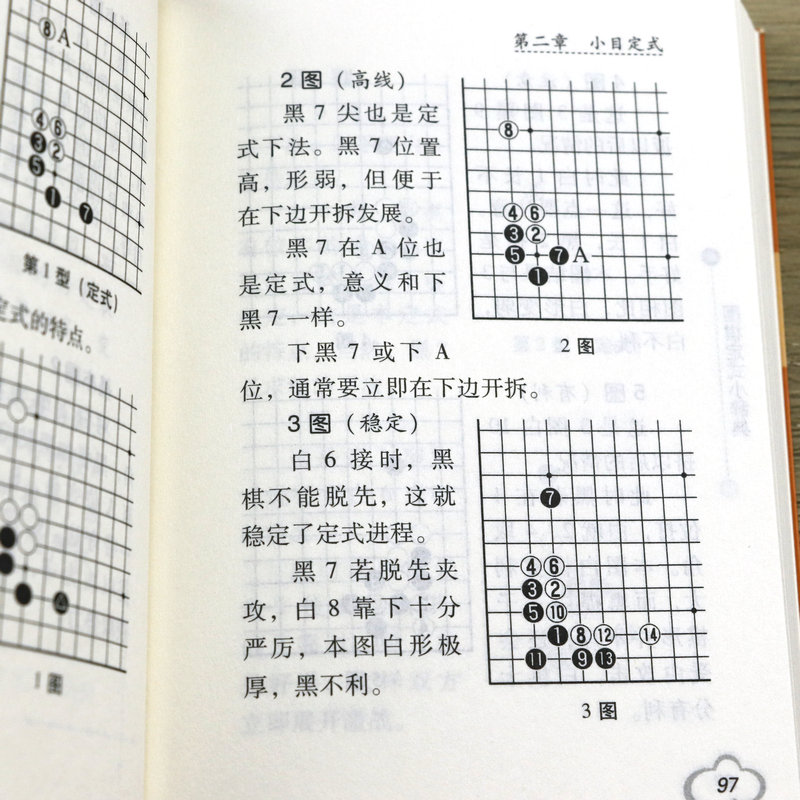 第二章 小目定式
2图（高线）
黑7尖也是定
式下法。黑7位置
高，形弱，但便于
在下边开拆发展。
黑7在A位也
是定式，意义和下
黑7一样。
下黑7或下A
位，通常要立即在下边开拆。
3图（稳定）
白6接时，黑
棋不能脱先，这就
稳定了定式进程。
黑7若脱先夹
攻，白8靠下十分
严厉，本图白形极
厚，黑不利。
8
4 6
3 2
5 7 A
1
2图
7
4 6
3 2
5 10
1 8 12 14
11 9 13
3图
97
8 A
4 6
3 2
5
1 7
第1型（定式）
定式的特点。
1图